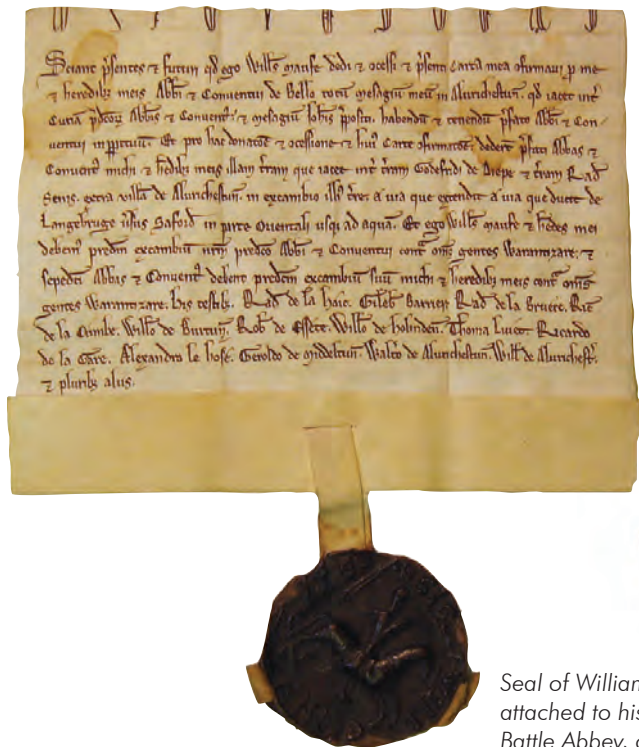 Sciant p̄sentes ⁊ futuri qd̄ ego Will̄s maufe dedi ⁊ c̄cessi ⁊ p̄senti carta mea c̄firmaui p̱ me
⁊ heredib; meis Abb̄i ⁊ Conuentui de Bello totū mesagiū meū in Alurichestun. qd̄ iacet int̄
Curiā p̄dc̄oꝝ Abb̄is ⁊ Conuent̄. ⁊ mesagiū habendū ⁊ tenendū p̄fato Abb̄i ⁊ Con-
uentui in p̱petuū. Et pro hac donatōe ⁊ c̄cessione ⁊ hui᷒ Carte c̄firmatōe dedert̄ p̄fati Abbas ⁊
Conuent᷒ michi ⁊ h̄edib; meis illam t̄ram que iacet int̄ t̄ram Godefridi de Diepe ⁊ t̄ram Rad̄
Senis. extra villā de Alurichestun. in excambio illi᷒ t̄re. a uia que extendit a uia que ducit de
Langebruge Saford in parte Orientali usq; ad aquā. Et ego Will̄s maufe ⁊ h̄edes mei
debem᷒ p̄dem̄ excambiū p̄dc̄o Abb̄i ⁊ Conuentui cont̄ om̄s gentes Warantizare. ⁊
sepedc̄i Abbas ⁊ Conuent᷒ debent p̄dc̄m excambiū suū michi ⁊ heredib; meis cont̄ om̄s
gentes Warantizare. his testib;. Rad̄ de la haie. Gileb̄ Barrier Rad̄ de la Bruere. Ric̄
de la Cumbe. Will̄o de Burtun. Rob̄ de Essete. Will̄o de holinden. Thoma Ricardo
de la Gare. Alexandro le hose. Geroldo de middeltun. Walt̄o de Alurichestun. Will̄ de Alurichest̄.
⁊ plurib; aliis.
Seal of William
attached to his
Battle Abbey,